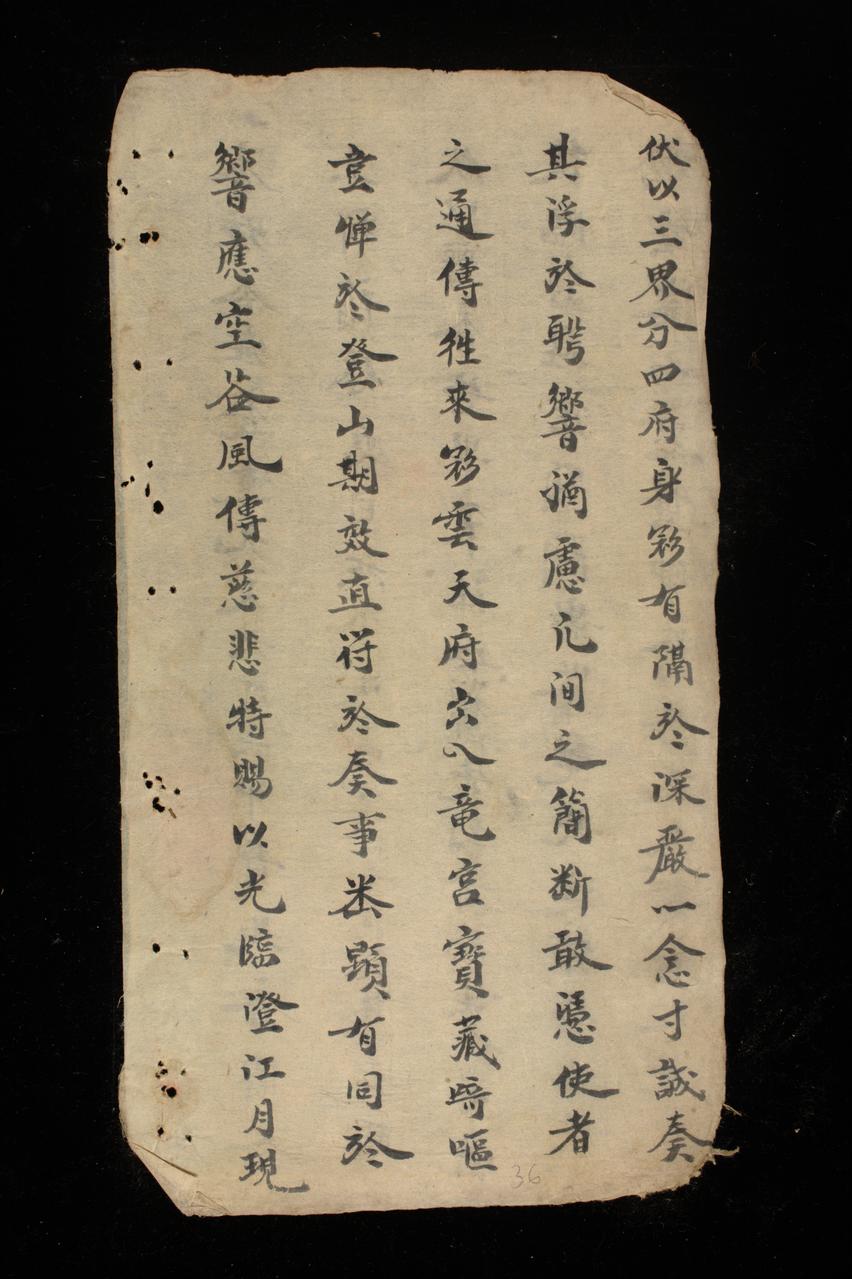 伏以三界分四府身彩有隔於深嚴一念寸誠奏
其浮於聘響猶慮凢间之簡断敢憑使者
之通傳徃來彩雲天府出入竜宮寶藏崎嶇
豈惮於登山期效直符於奏事幽顕有同於
響應空谷風傳慈悲特賜以光臨澄江月現
36